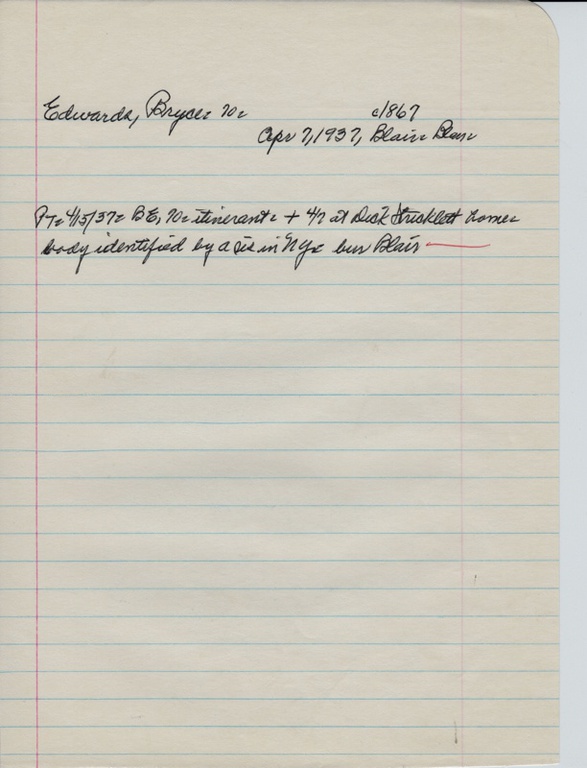 Edwards, Bryce: 70: c1867
Apr 7, 1937, Blair: Blair:
PT: 4/15/37: B E, 70: itinerant: + 4/7 at Dick Stricklett home:
body identified by a sis in NY: bur Blair